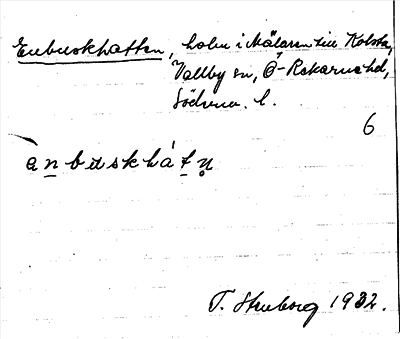 Enbuskhatten, holm i Mälaren till Kolsta,
Vallby sn, Ö-Rekarne hd,
Söderm. l.
6
ènbuskhátn̥
T. Stenborg 1932.